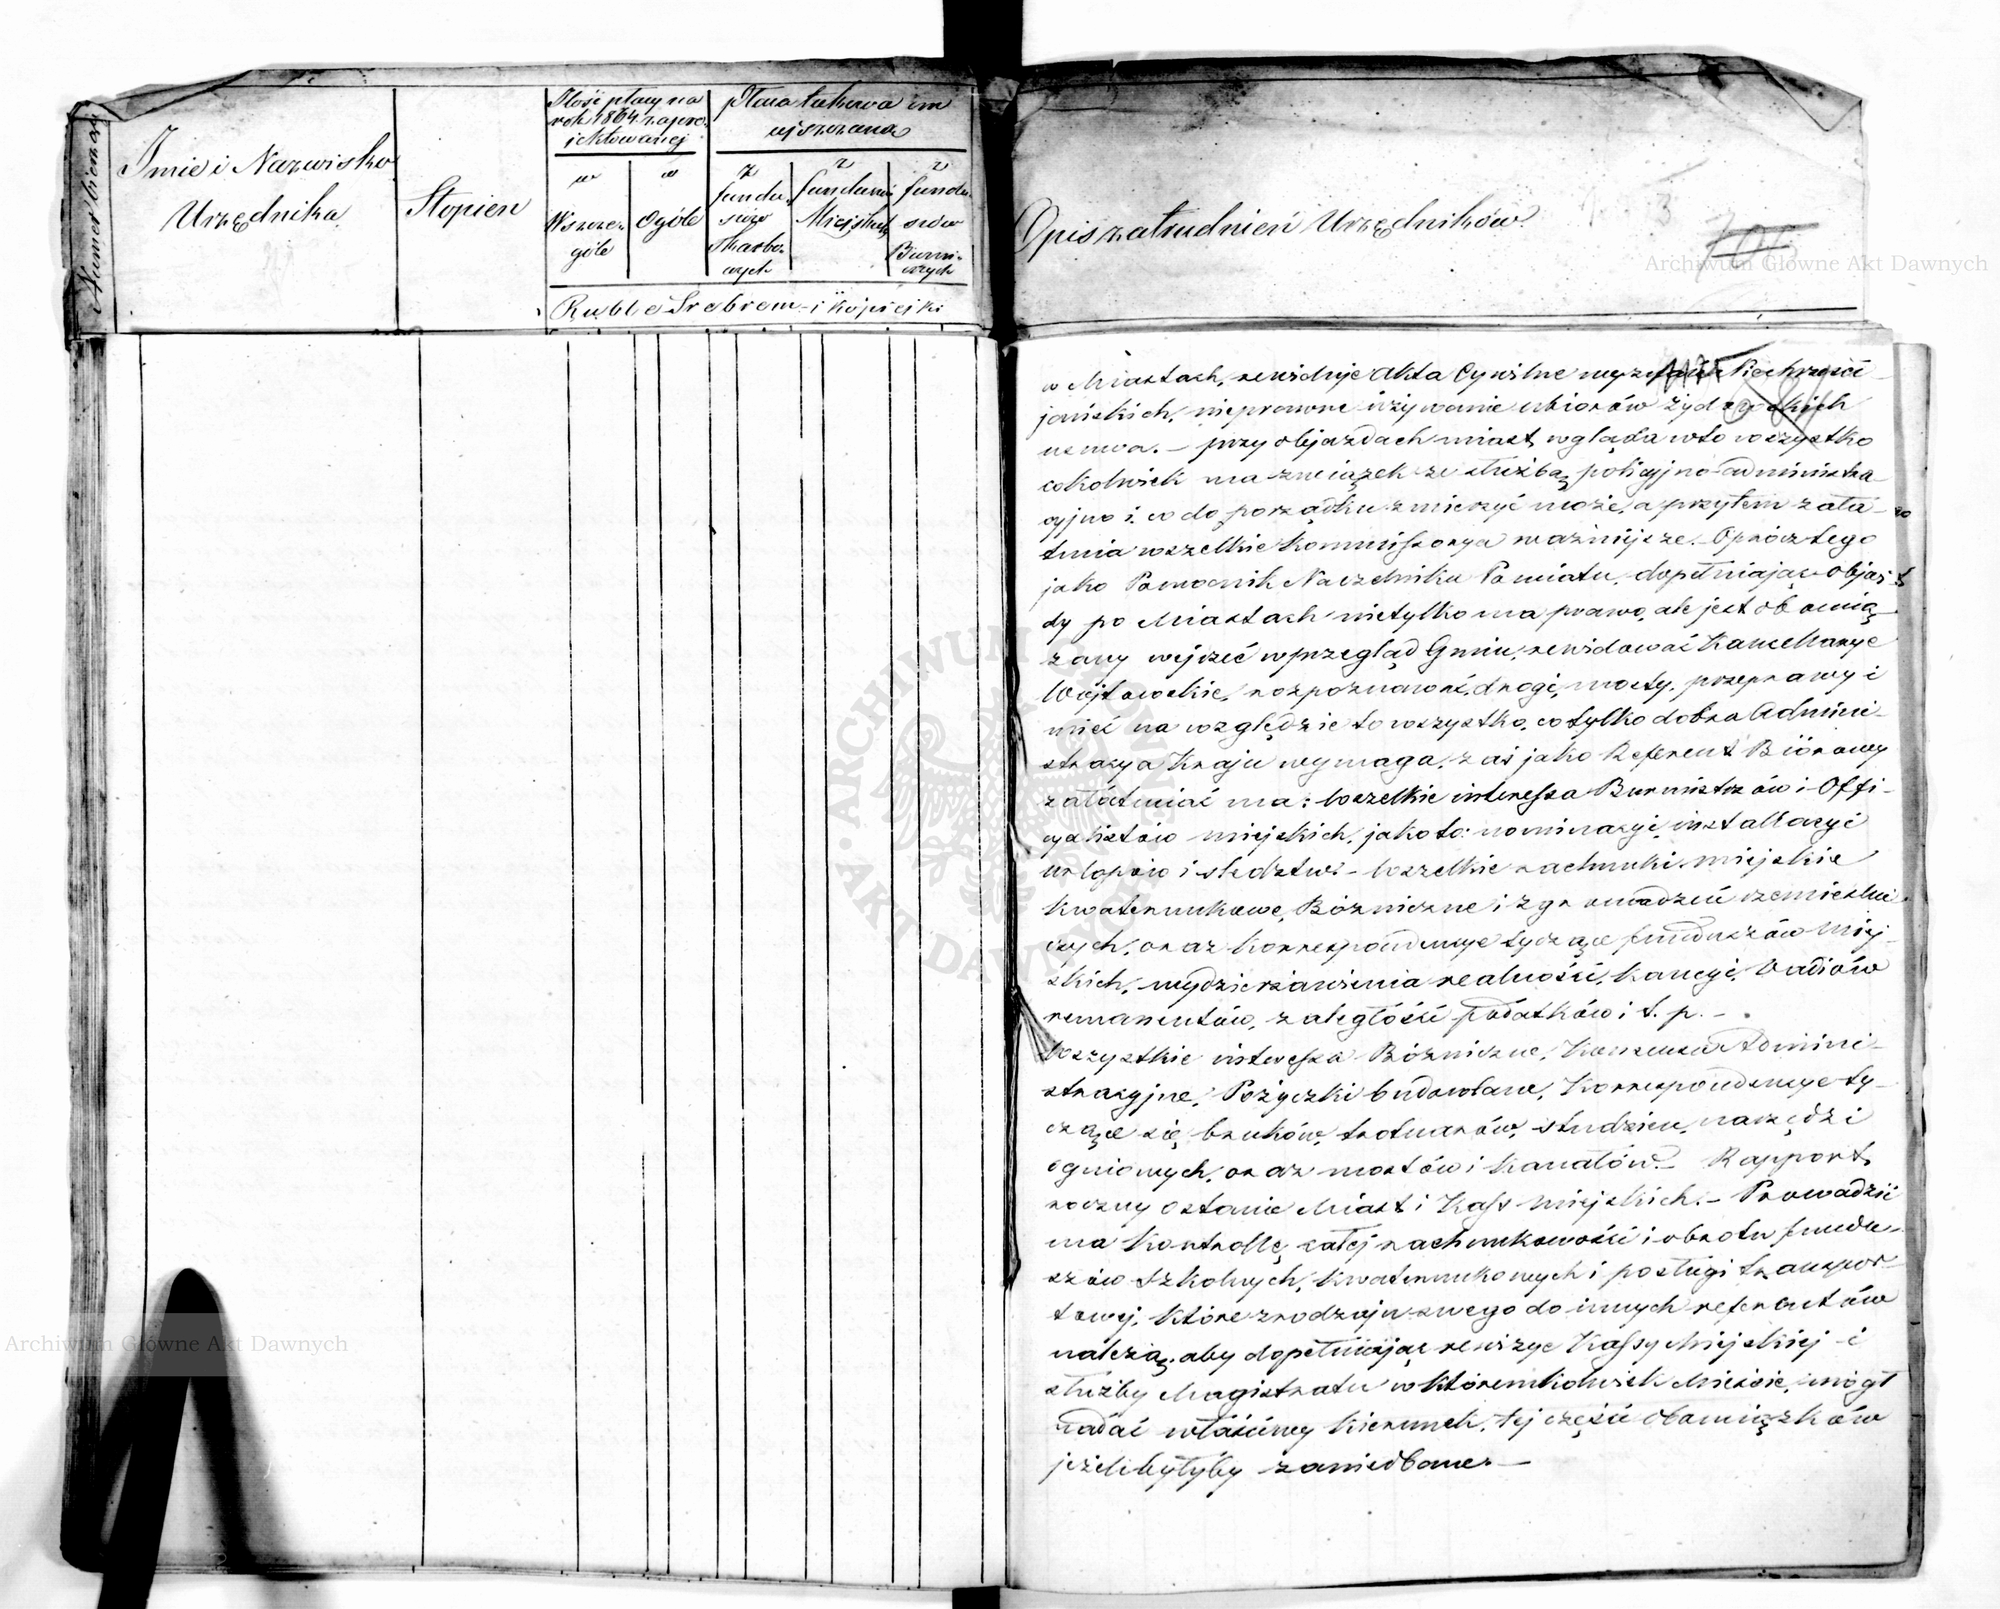 Numer bieżący
Imie i Nazwisko
Urzędnika
Stopień
Ilość płacy na
rok 1864 zapro-
jektowanej
w
Wszcze-
góle
w
Ogóle
Płaca takowa im
uiszczana
z
fundu-
szów
skarbo-
wych
z
funduszów
Miejskich
z
fundu-
szów
Bożni-
cznych
Ruble Srebrem i kopiejki
Opis zatrudnień Urzędników
w Miastach, rewiduje Akta Cywilne wyznań Niechrześci-
jańskich, nieprawne używanie ubiorów żydowskich
usuwa. – przy objazdach miast wgląda w to wszystko
cokolwiek ma związek ze służbą policyjno-administra-
cyjno i co do porządku zmierzyć może, a przytem zała-
twia wszelkie Kommissorya ważniejsze. – Oprócz tego
jako Pomocnik Naczelnika Powiatu, dopełniając objaz-
dy po Miastach nietylko ma prawo, ale jest obowią-
zany wejrzeć w przegląd Gmin, rewidować Kancellarye
Wójtowskie, rozpoznawać drogi, mosty, przeprawy i
mieć na względzie to wszystko, co tylko dobra Admini-
stracya Kraju wymaga, zaś jako Referent Biórowy
załatwiać ma: wszelkie interessa Burmistrzów i Offi-
cyalistów miejskich, jako to: nominacyi, installacyi
urlopów i śledztw. – wszelkie rachunki miejskie
Kwaterunkowe, Bóżniczne i zgromadzeń rzemieślni-
czych, oraz Korrespondencye tyczące funduszów Miej-
skich, wydzierżawienia realności, Kaucyi, Vadiów
remanentów, zaległości podatków i t. p. –
Wszystkie interessa Bóżniczne, Konsensa Admini-
stracyjne, Pożyczki budowlane, Korrespondencye ty-
czące się bruków, trotuarów, studzien, narzędzi
ogniowych, oraz mostów i Kanałów. – Rapport
roczny o stanie Miast i Kass miejskich. – Prowadzić
ma Kontrollę całej rachunkowości i obrotu fundu-
szów Szkolnych, Kwaterunkowych i posługi transpor-
towej, które z rodzaju swego do innych referentów
należą, aby dopełniając rewizye Kassy Miejskiej i
służby Magistratu w którémkolwiek Mieście, mógł
nadać właściwy Kierunek, tej części obowiązków
jeżeliby były zaniedbane. –
Archiwum Główne Akt Dawnych
Archiwum Główne Akt Dawnych
ARCHIWUM GŁÓWNE
AKT DAWNYCH